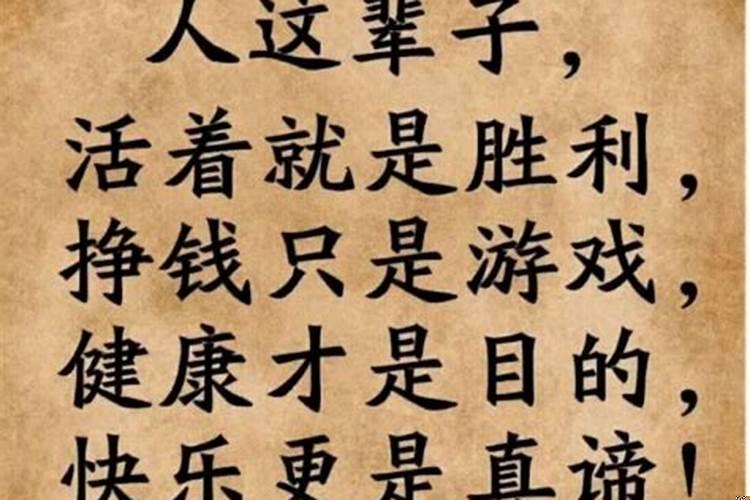 人这辈子，
活着就是胜利，
挣钱只是游戏，
健康才是目的，
快乐更是真谛！